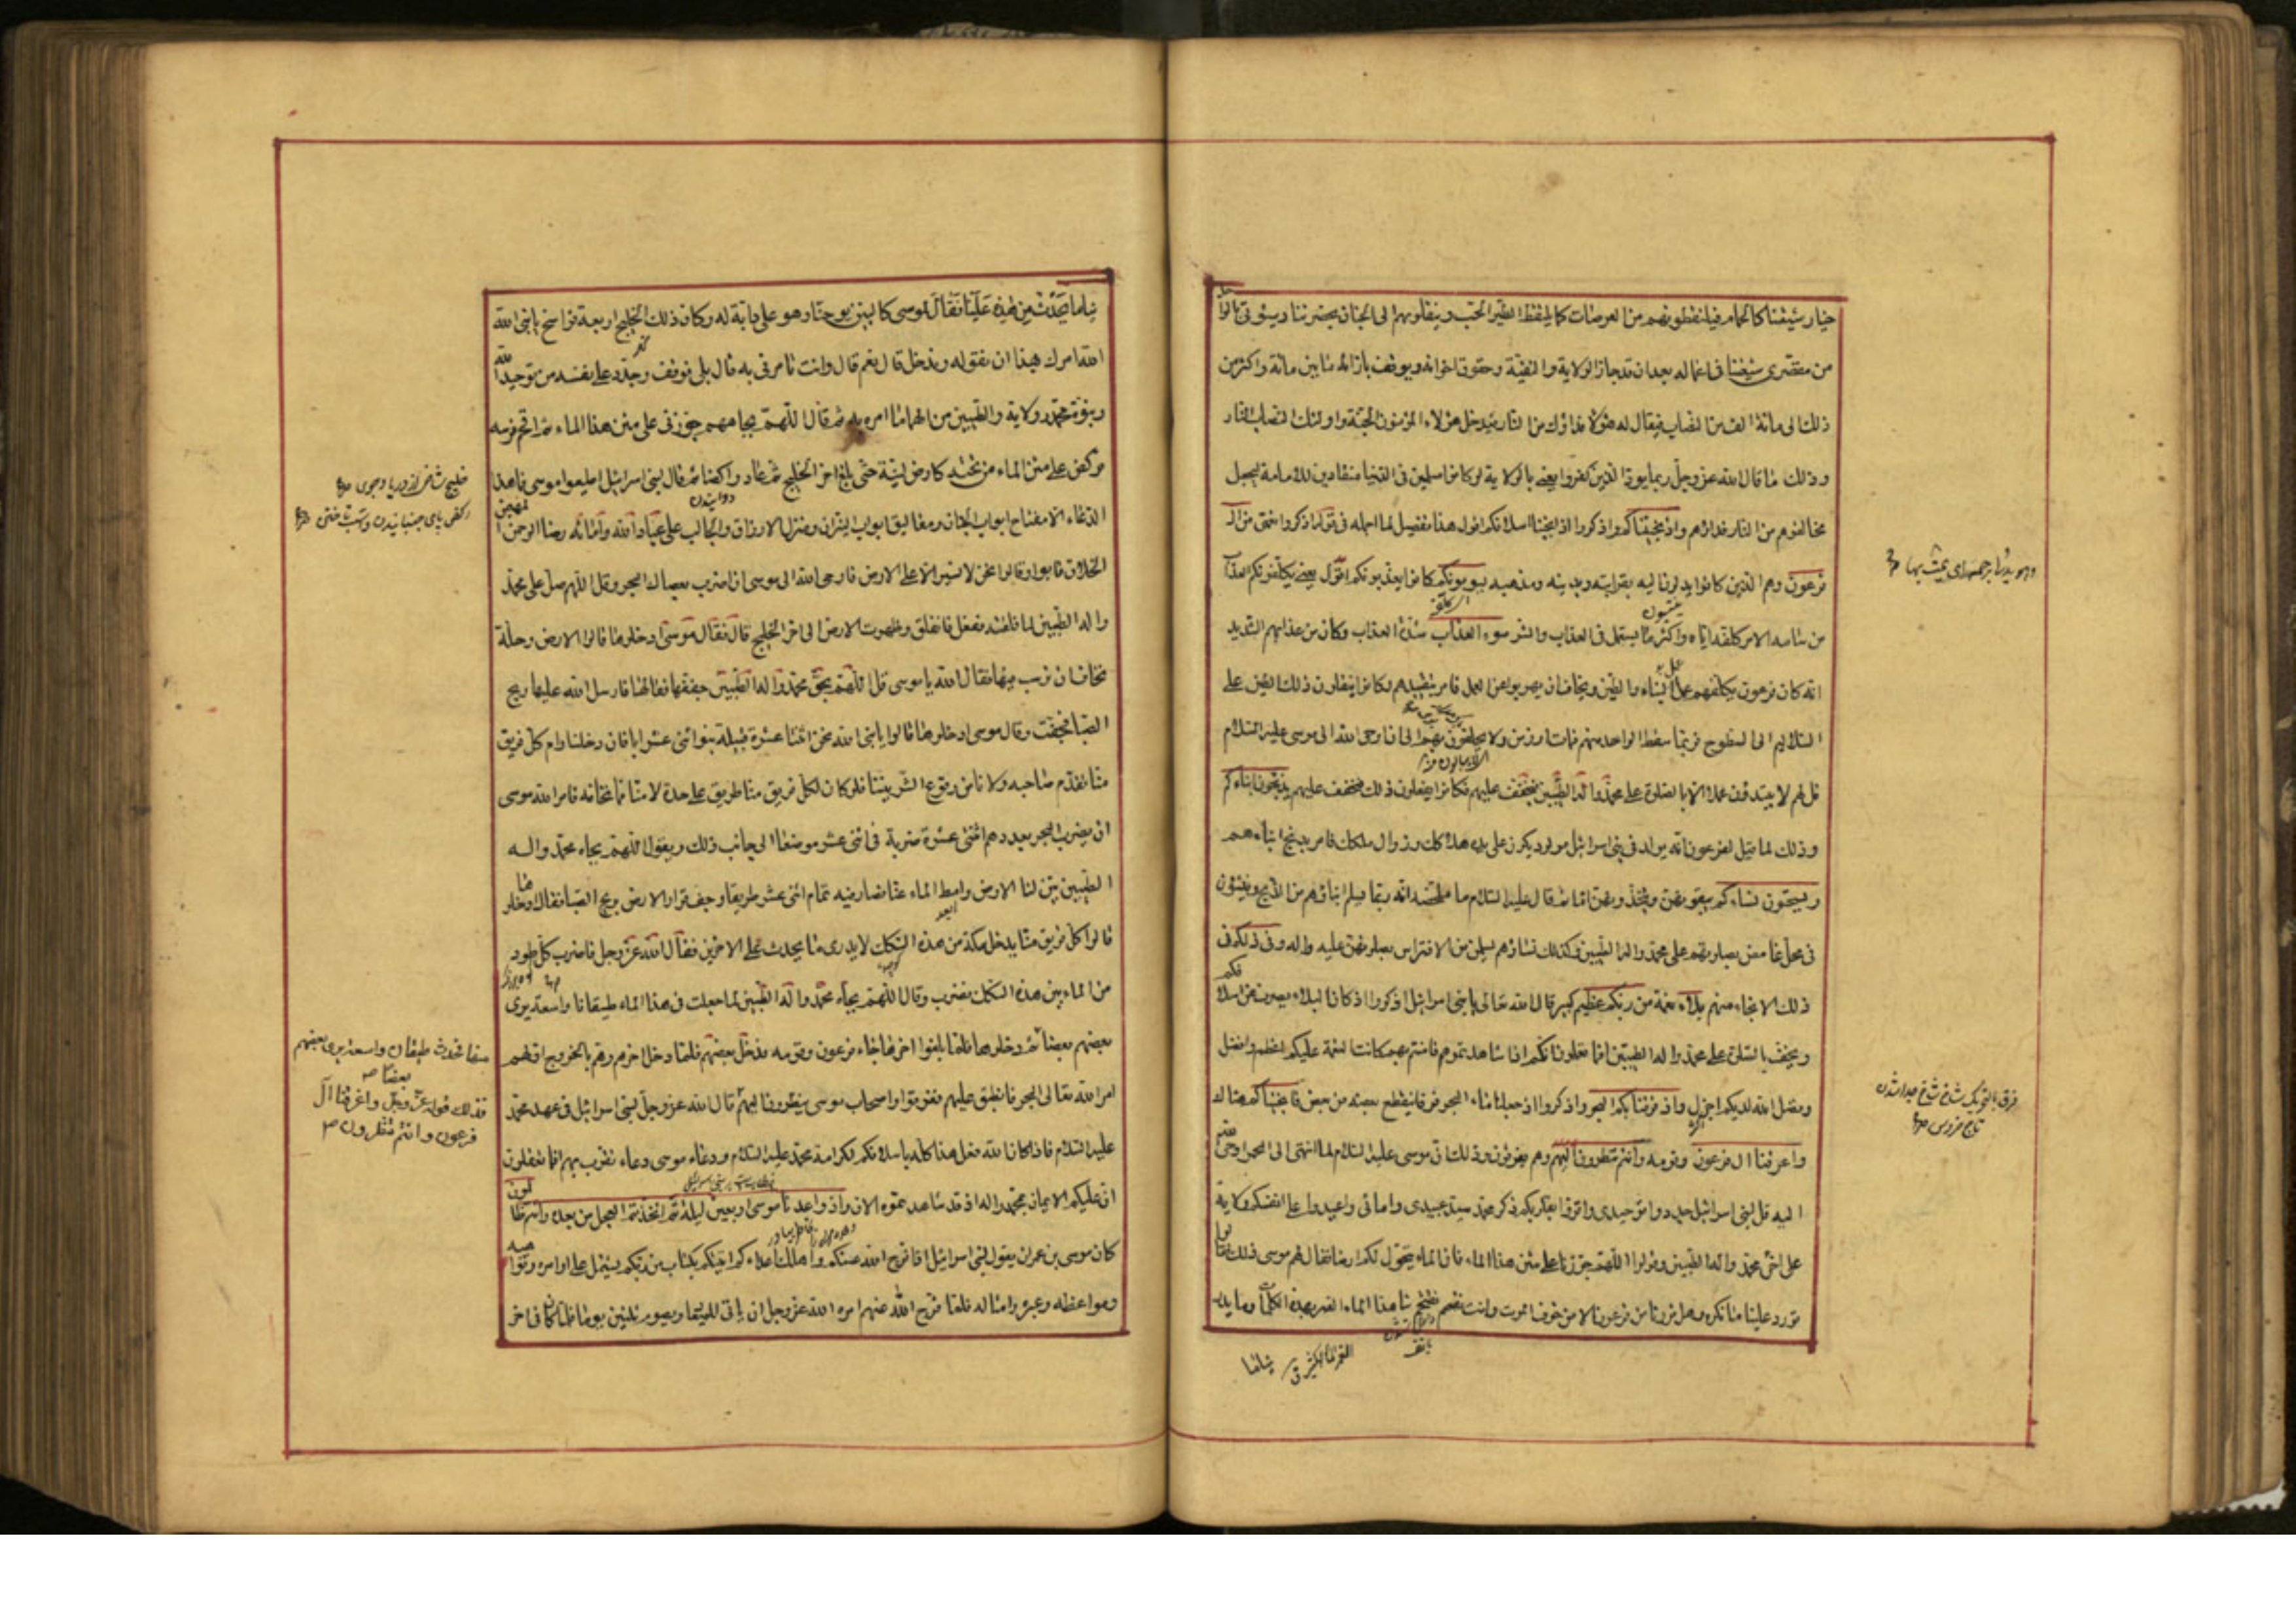 خيار شيعتنا كالحمام فيلتقطونهم من العرصات كما يلتقط الطير الحب وينقلونهم الى الجنان بحضرتنا وسيؤتى
من مقصرى شيعتنا فى اعماله بعد ان قد حاز الولاية والتقية وحقوق اخوانه ويوقف بازائه ما بين مائة واكثر من
ذلك الى مائة الف من النصاب فيقال له هؤلاء فداؤك من النار فيدخل هؤلاء المؤمنون الجنة واولئك النصاب النار
وذلك ما قال الله عز وجل ربما يود الذين كفروا يعنى بالولاية لو كانوا مسلمين فى الدنيا منقادين للامامة ليجعل
مخالفوهم من النار فداؤهم واذ نجيناكم واذكروا اذ انجينا اسلافكم اقول هذا تفصيل لما اجمله فى قوله اذكروا نعمتى من ال
فرعون وهم الذين كانوا يدلون اليه بقرابته وبدينه ومذهبه يسومونكم كانوا يعذبونكم اقول يعنى يكلفونكم العذاب
من سامه الامر كلفه اياه واكثر ما يستعمل فى العذاب والشر سوء العذاب شدة العذاب وكان من عذابهم الشديد
انه كان فرعون يكلفهم عمل البناء والطين ويخاف ان يهربوا عن العمل فامر بتقييدهم وكانوا ينقلون ذلك الطين على
السلاليم الى السطوح فربما سقط الواحد منهم فمات او زمن ولا يحفلون بهم الى ان اوحى الله الى موسى عليه السلام
قل لهم لا يبتدؤن عملا الا بالصلوة على محمد واله الطيبين ليخفف عليهم فكانوا يفعلون ذلك فيخفف عليهم يذبحون ابناءكم
وذلك لما قيل لفرعون انه يولد فى بنى اسرائيل مولود يكون على يده هلاكك وزوال ملكك فامر بذبح ابناءهم
ويستحيون نساءكم يبقونهن ويتخذونهن اماء ثم قال عليه السلام ما ملخصه انه ربما يسلم ابناؤهم من الذبح وينشؤن
فى محل غامض بصلوتهم على محمد واله الطيبين وكذلك نساؤهم يسلمن من الافتراس بصلوتهن عليه واله وفى ذلكم فى
ذلك الانجاء منهم بلاء نعمة من ربكم عظيم كبير قال الله تعالى يا بنى اسرائيل اذكروا اذ كان البلاء يصرف عن اسلافكم
ويخفف بالصلوة على محمد واله الطيبين افما تعلمون انكم اذا شاهدتموهم فامنتم بهم كانت النعمة عليكم اعظم وافضل
وفضل الله لديكم اجزل واذ فرقنا بكم البحر واذكروا اذ جعلنا ماء البحر فرقا ينقطع بعضه من بعض فانجيناكم هنالك
واغرقنا ال فرعون وقومه وانتم تنظرون اليهم وهم يغرقون وذلك ان موسى عليه السلام لما انتهى الى البحر اوحى الله
اليه قل لبنى اسرائيل جددوا توحيدى واقروا بقلوبكم ذكر محمد سيد عبيدى وامائى واعيدوا على انفسكم ولاية
على اخى محمد واله الطيبين وقولوا اللهم جوزنا على متن هذا الماء فان الماء يتحول لكم ارضا فقال لهم موسى ذلك فقالوا
تورد علينا ما نكره وهل فررنا من فرعون الا من خوف الموت وانت تقتحم بنا هذا الماء الغمر بهذه الكلمات وما يدرينا
الغمر الماء الكثير ق
بنا ما
وسويدتها برجهيداى يمشى بها
فرق بالتحريك شاخ شاخ جداشدن
تاج مزوس
بنا ما يحدث من هذه علينا فقال لموسى كالب بن يوحنا وهو على دابة له وكان ذلك الخليج اربعة فراسخ يا نبى الله
الله امرك بهذا ان نقوله وندخل قال نعم قال وانت تامرنى به قال بلى فوقف وجدد على نفسه من توحيد الله
ونبوة محمد وولاية والطيبين من الهما ما امره به ثم قال اللهم بجاههم جوزنى على متن هذا الماء ثم اقحم فرسه
فركض على متن الماء من تحته كارض لينة حتى بلغ اخر الخليج ثم عاد راكضا ثم قال لبنى اسرائيل اطيعوا موسى فما هذا
الدعاء الا مفتاح ابواب الجنان ومغاليق ابواب النيران ومنزل الارزاق والجالب على عباد الله وامائه رضا الرحمن المهيمن
الخلاق فابوا وقالوا نحن لا نسير الا على الارض فاوحى الله الى موسى ان اضرب بعصاك البحر وقل اللهم صل على محمد
واله الطيبين لما فلقته ففعل فانفلق وظهرت الارض الى اخر الخليج قال فقال موسى ادخلوها قالوا الارض وحلة
نخاف ان نرسب فيها فقال الله يا موسى قل اللهم بحق محمد واله الطيبين جففها فقالها فارسل الله عليها ريح
الصبا فجفت وقال موسى ادخلوها قالوا يا نبى الله نحن اثنتا عشرة قبيلة بنو اثنى عشر ابا فان دخلنا رام كل فريق
منا تقدم صاحبه ولا نامن وقوع الشر بيننا فلو كان لكل فريق منا طريق على حدة لامنا ما نخافه فامر الله موسى
ان يضرب البحر بعددهم اثنتى عشرة ضربة فى اثنى عشر موضعا الى جانب ذلك ويقول اللهم بجاه محمد واله
الطيبين بين لنا الارض وامط الماء عنا فصار فيه تمام اثنى عشر طريقا وجف قرار الارض بريح الصبا فقال ادخلوها
قالوا كل فريق منا يدخل سكة من هذه السكك لا يدرى ما يحدث على الاخرين فقال الله عز وجل فاضرب كل طود
من الماء بين هذه السكك فضرب وقال اللهم بجاه محمد واله الطيبين لما جعلت فى هذا الماء طيقانا واسعة يرى
بعضهم بعضا ثم دخلوها فلما بلغوا اخرها جاء فرعون وقومه فدخل بعضهم فلما دخل اخرهم وهم بالخروج اولهم
امر الله تعالى البحر فانطبق عليهم فغرقوا واصحاب موسى ينظرون اليهم قال الله عز وجل لبنى اسرائيل فى عهد محمد
عليه السلام فاذا كان الله فعل هذا كله باسلافكم لكرامة محمد عليه السلام ودعاء موسى دعاء تقرب بهم افما تعقلون
ان عليكم الايمان بمحمد واله اذ قد شاهدتموه الان واذ واعدنا موسى اربعين ليلة ثم اتخذتم العجل من بعده وانتم ظالمون
كان موسى بن عمران يقول لبنى اسرائيل اذا فرج الله عنكم واهلك اعداءكم اتيتكم بكتاب من ربكم يشتمل على اوامره ونواهيه
ومواعظه وعبره وامثاله فلما فرج الله عنهم امره الله عز وجل ان ياتى للميقات ويصوم ثلثين يوما فلما كان فى اخر
خليج شاخى از دريا وجوى
ركض پاى جنبانيدن وشتافتن
فحدث طيقان واسعة يرى بعضهم
بعضا
فذلك قوله عز وجل واغرقنا آل
فرعون وانتم تنظرون